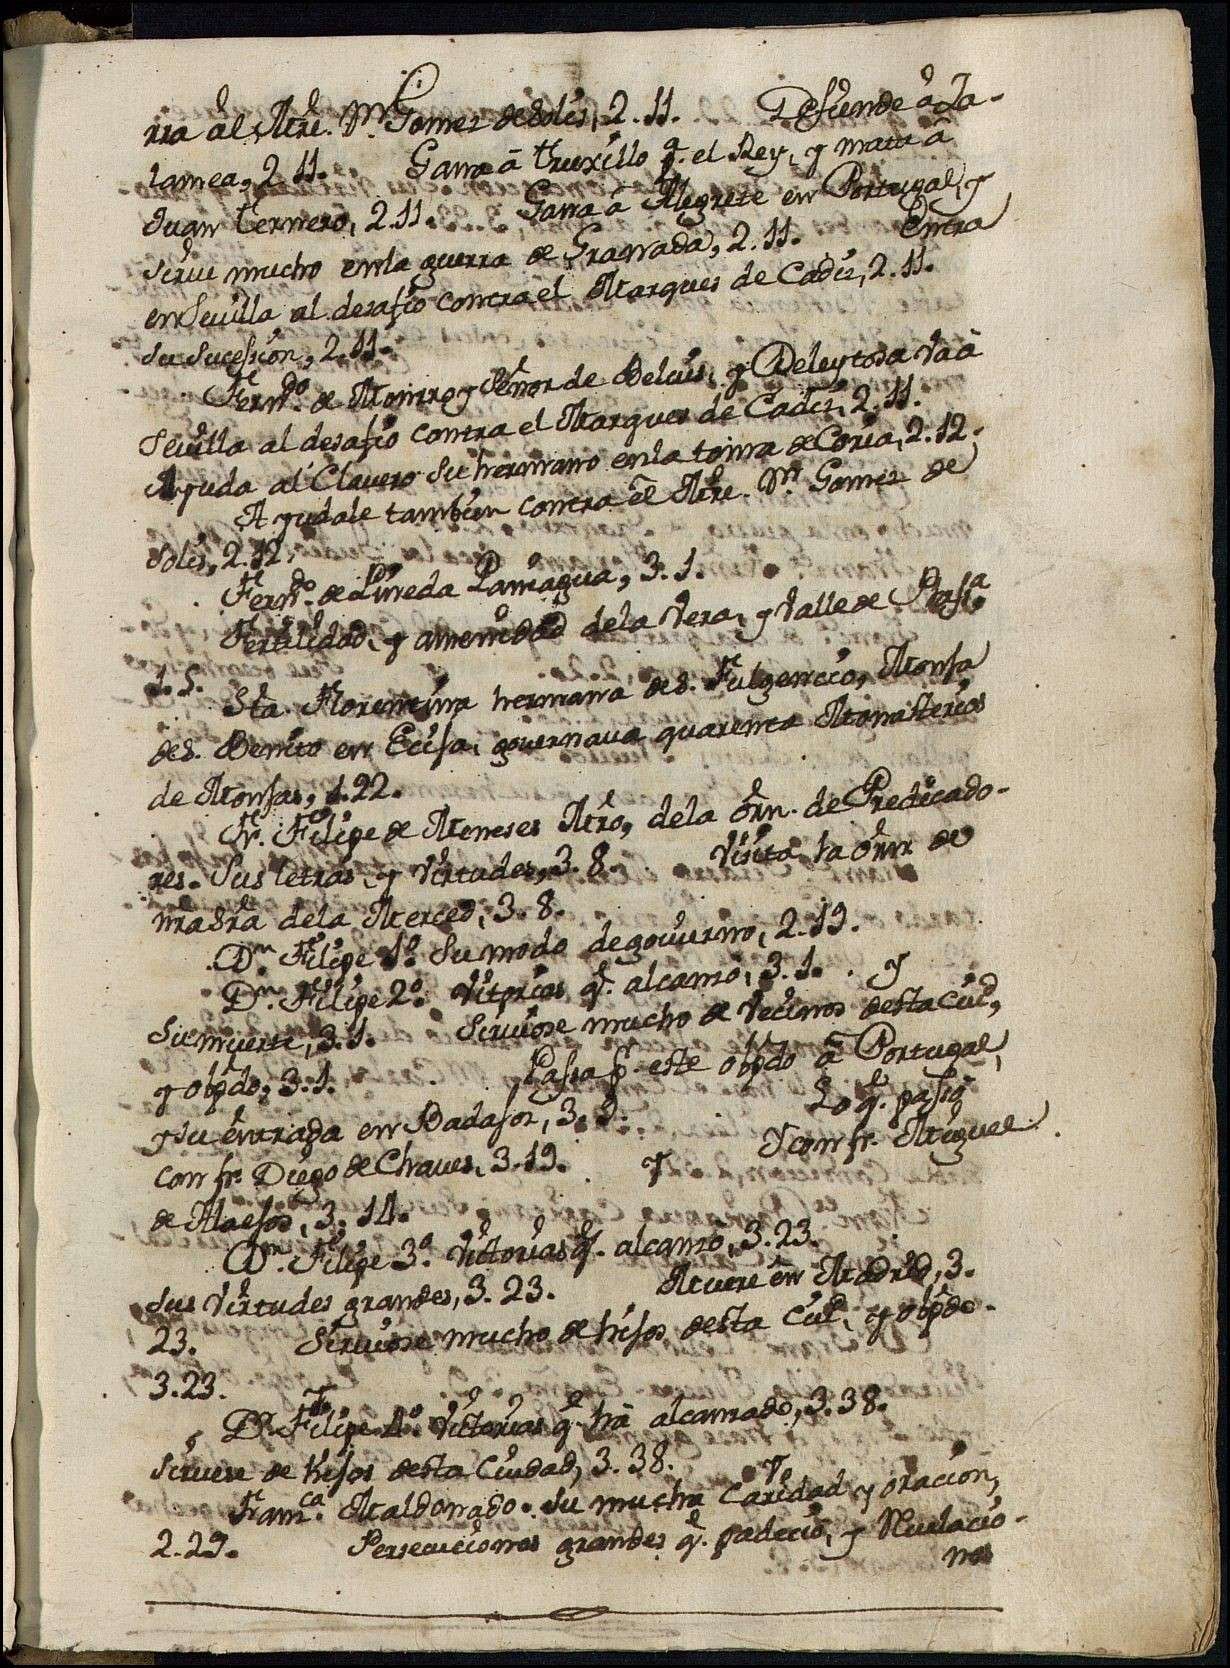 rra al Mrē. Dn. Gomez de Solis, 2. 11. Defiende â Za-
lamea, 2. 11. Gana â truxillo pr. el Rey, y mata â
Juan ternero, 2. 11. Gana â Alegrete en Portugal, y
sirue mucho enla guerra de Granada, 2. 11. Entra
en Seuilla al desafio contra el Marques de Cadiz, 2. 11.
Su sucesion, 2. 11.
Ferndo. de Monrroy Señor de Beluis, y Deleytosa Va â
Seuilla al desafio contra el Marques de Cadiz, 2. 11.
Ayuda al Clauero su hermano enla toma de Coria, 2. 12.
Ayudale tambien contra el Mrē. Dn. Gomez de
Solis, 2. 12.
Ferndo. de Pineda Paniagua, 3. 1.
Fertilidad, y amenidad dela Vera, y Valle de Plasa.
1. 5.
Sta. Florentina hermana de S. Fulgencio, Monja
de S. Benito en Ecija, gouernaua quarenta Monasterios
de Monjas, 1. 22.
Fr. Filipe de Meneses Mro, dela Orn. de Predicado-
res. Sus letras, y Virtudes, 3. 8. Visita la Orn de
nra Sra dela Merced, 3. 8.
Dn. Filipe 1º. Su modo de gouierno, 2. 19.
Dn. Filipe 2º. Vitorias q. alcanzó, 3. 1. y
Su muerte, 3. 1. Siruiose mucho de Vecinos desta Ciud,
y obpdo, 3. 1. Passa pr. este obpdo â Portugal,
y su entrada en Badajoz, 3. 1. Lo q. pasó
con fr. Diego de Chaues, 3. 19. Y Y con fr. Miguel
de Alaejos, 3. 14.
Dn. Filipe 3º. Victorias q. alcanzó, 3. 23.
Sus Virtudes grandes, 3. 23. Muere en Madrid, 3.
23. Siruiose mucho de hijos desta Ciud, y obpdo.
3. 23.
Dn. Filipe 4º. Victorias q. há alcanzado, 3. 38.
Siruese de hijos desta Ciudad, 3. 38.
Franca. Maldonado. Su mucha Caridad y oracion,
2. 29. Persecuciones grandes q. padeció, y Reuelacio-
nes